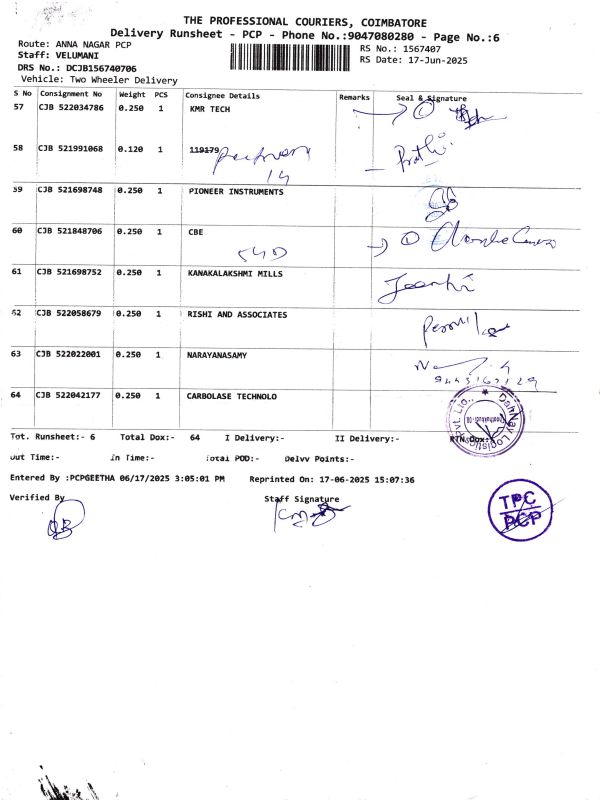 THE PROFESSIONAL COURIERS, COIMBATORE
Delivery Runsheet - PCP - Phone No.:9047080280 - Page No.:6
Route: ANNA NAGAR PCP
RS No.: 1567407
Staff: VELUMANI
RS Date: 17-Jun-2025
DRS No.: DCJB156740706
Vehicle: Two Wheeler Delivery
S No Consignment No Weight PCS Consignee Details Remarks Seal & Signature
57 CJB 522034786 0.250 1 KMR TECH
58 CJB 521991068 0.120 1 119179
14
59 CJB 521698748 0.250 1 PIONEER INSTRUMENTS
60 CJB 521848706 0.250 1 CBE
61 CJB 521698752 0.250 1 KANAKALAKSHMI MILLS
62 CJB 522058679 0.250 1 RISHI AND ASSOCIATES
63 CJB 522022001 0.250 1 NARAYANASAMY
64 CJB 522042177 0.250 1 CARBOLASE TECHNOLO
Tot. Runsheet:- 6 Total Dox:- 64 I Delivery:- II Delivery:- RTN Dox:-
Out Time:- In Time:- Total POD:- Delvv Points:-
Entered By :PCPGEETHA 06/17/2025 3:05:01 PM Reprinted On: 17-06-2025 15:07:36
Verified By Staff Signature
TPC
PCP